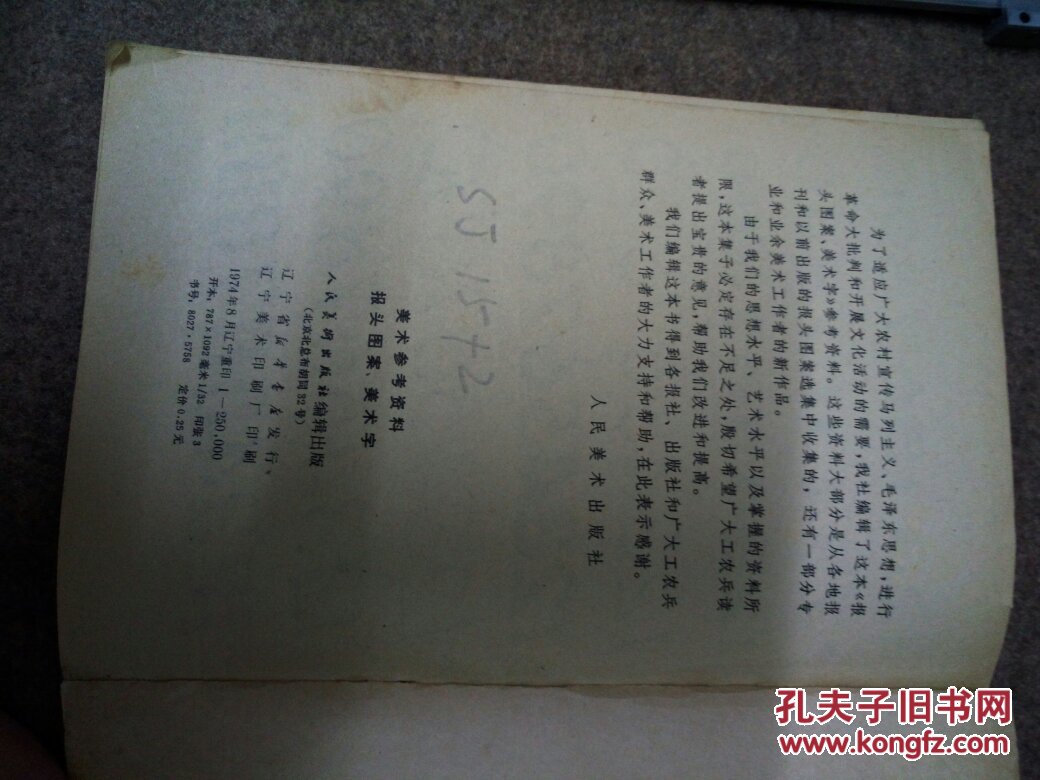 为了适应广大农村宣传马列主义、毛泽东思想，进行
革命大批判和开展文化活动的需要，我社编辑了这本《报
头图案、美术字》参考资料。这些资料大部分是从各地报
刊和以前出版的报头图案选集中收集的，还有一部分专
业和业余美术工作者的新作品。
由于我们的思想水平、艺术水平以及掌握的资料所
限，这本集子必定存在不足之处，殷切希望广大工农兵读
者提出宝贵的意见，帮助我们改进和提高。
我们编辑这本书得到各报社、出版社和广大工农兵
群众、美术工作者的大力支持和帮助，在此表示感谢。
人民美术出版社
SJ 1572
美术参考资料
报头图案、美术字
人民美术出版社编辑出版
（北京北总布胡同32号）
辽宁省新华书店发行
辽宁美术印刷厂印刷
1974年8月辽宁重印1—250,000
开本：787×1092毫米1/32 印张3
书号：8027·5758 定价0.25元
孔夫子旧书网
www.kongfz.com